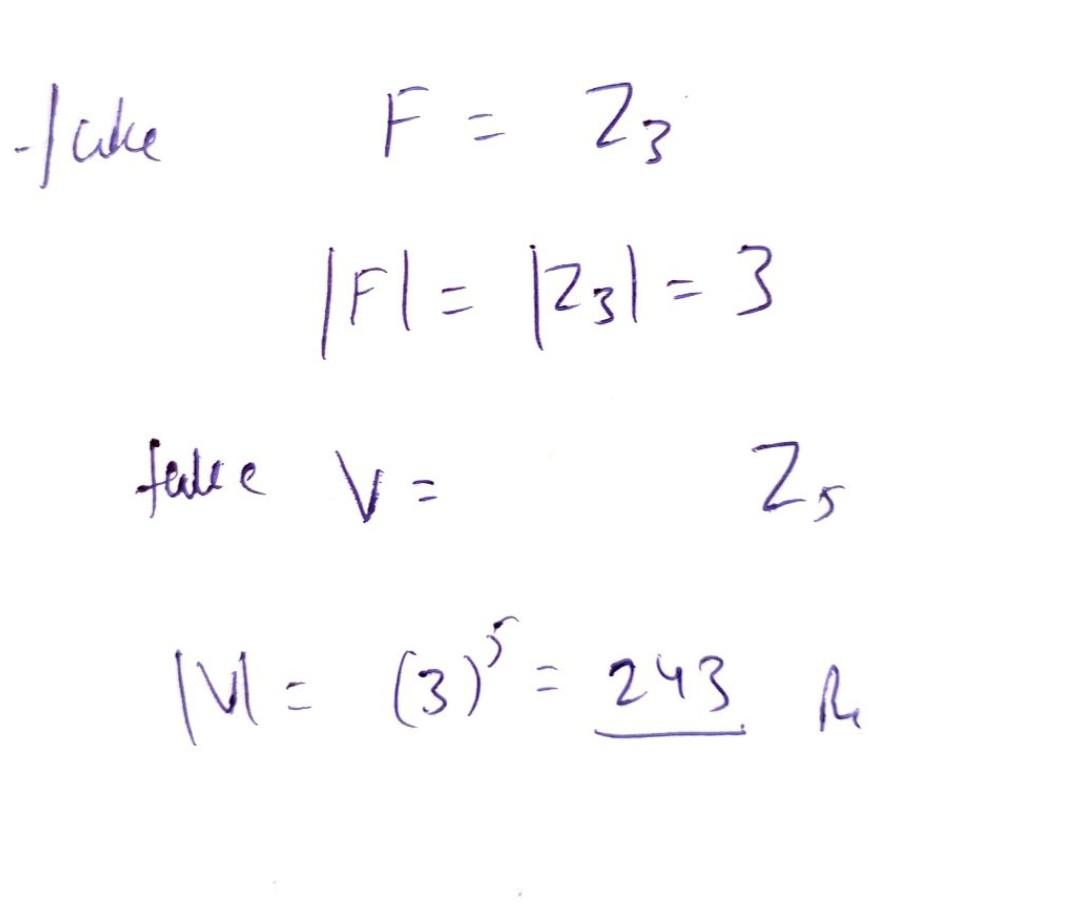 take F = Z₃
|F| = |Z₃| = 3
take V = Z₅
|V| = (3)⁵ = 243